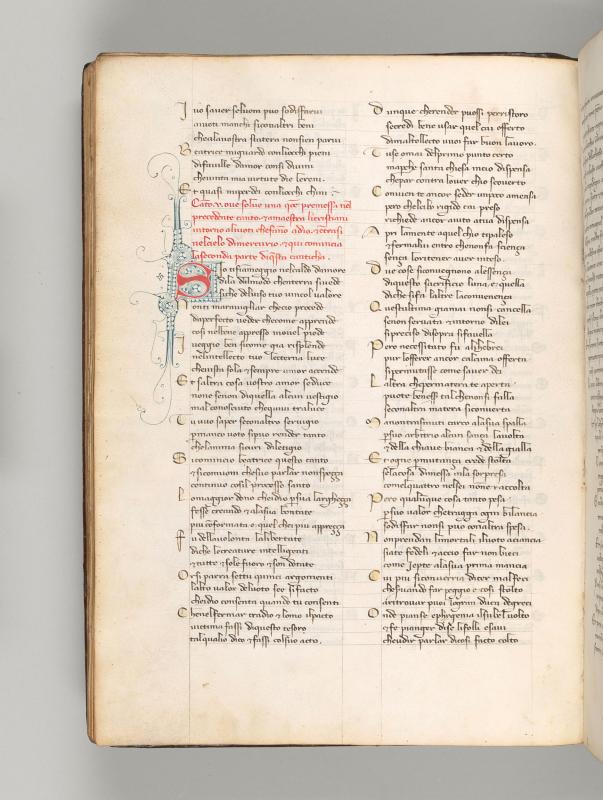 I vo saver selvom puo sodisfarvi
avoti manchi siconaltri beni
chealavostra statera nonsien parvi
B eatrice miguardo conliocchi pieni
difaville damor cosi divini
chevinta mia virtute die lereni
E t quasi miperdei conliocchi chini
Cato .v. ove solve una qōe premessa nel
precedente canto & amaestra licristiani
intorno alivoti chefāno adio. & entrasi
nelcielo dimercurio. & qui comincia
laseconda parte diqsta canticha.
S Io tifiameggio nelcaldo damore
dila dalmodo chenterra sivede
siche deltuo viso vincol valore
N onti maravigliar checio procede
daperfecto veder checome apprende
cosi nelbene appresso movel piede
I veggio ben sicome gia risplende
nelintellecto tuo leterna luce
chevista sola & sempre amor accende
E t saltra cosa vostro amor seduce
none senon diquella alcun vestigio
mal conosciuto chequivi traluce
T u vuo saper seconaltro servigio
permanco voto sipuo render tanto
chelanima sicuri dilitigio
S i comincio beatrice questo canto
& sicomuom chesuo parlar nonspezza
continuo cosil processo santo
L omaggior dono cheidio p sua larghezza
fesse creando & alasua bontate
piu coformata e quel chei piu apprezza
F u dellavolonta lalibertate
diche lecreature intelligenti
& tutte & sole fuoro & son dotate
O rsi parra settu quinci argomenti
lalto valor delvoto seo sifacto
cheidio consenti quando tu consenti
C henelfermar tradio & lomo ilpacto
victima fassi diquesto tesoro
talqualio dico & fassi colsuo acto.
D unque cherender puossi perristoro
secredi bene usar quel cai offerto
dimaltollecto vuoi far buon lavoro.
T use omai delprimo punto certo
mapche santa chiesa incio dispensa
chepar contra lover chio scoverto
C onven te ancor seder unpoco amensa
pero chelcibo rigido cai preso
richiede ancor aiuto atua dispensa
A pri lamente aquel chio tipaleso
& fermalvi entro chenonfa scienza
senza loritener aver inteso.
D ue cose siconvegnono alessenza
diquesto sacrificio luna e quella
diche sifa laltre laconvenenza
Q uestultima giamai nonsi cancella
senon servata & intorno dilei
sipreciso disopra sifavella
P ero necessitato fu alhebrei
pur lofferer ancor calcuna offerta
sipermutasse come saver dei
L altra chepermatera te aperta
puote beness tal chenonsi falla
seconaltra matera siconverta
M anontrasmuti carco alasua spalla
p suo arbitrio alcun sanza lavolta
& della chiave bianca & della gialla
E t ogne pmutanza crede stolta
selacosa dimessa inla sorpresa
comelquattro nelsei none racolta
P ero qualunque cosa tanto pesa
p suo valor chetraggi ogni bilancia
sodisfar nonsi puo conaltra spesa.
N onprendan limortali ilvoto aciancia
siate fedeli & accio far nonbieci
come Iepte alasua prima mancia
C ui piu siconvenia dicer malfeci
cheservando far peggio & cosi stolto
ritrovar puoi logran duca degreci
O nde pianse ephygenia ilsubel volto
& fe pianger dise lifolli esavi
cheudir parlar dicosi facto colto